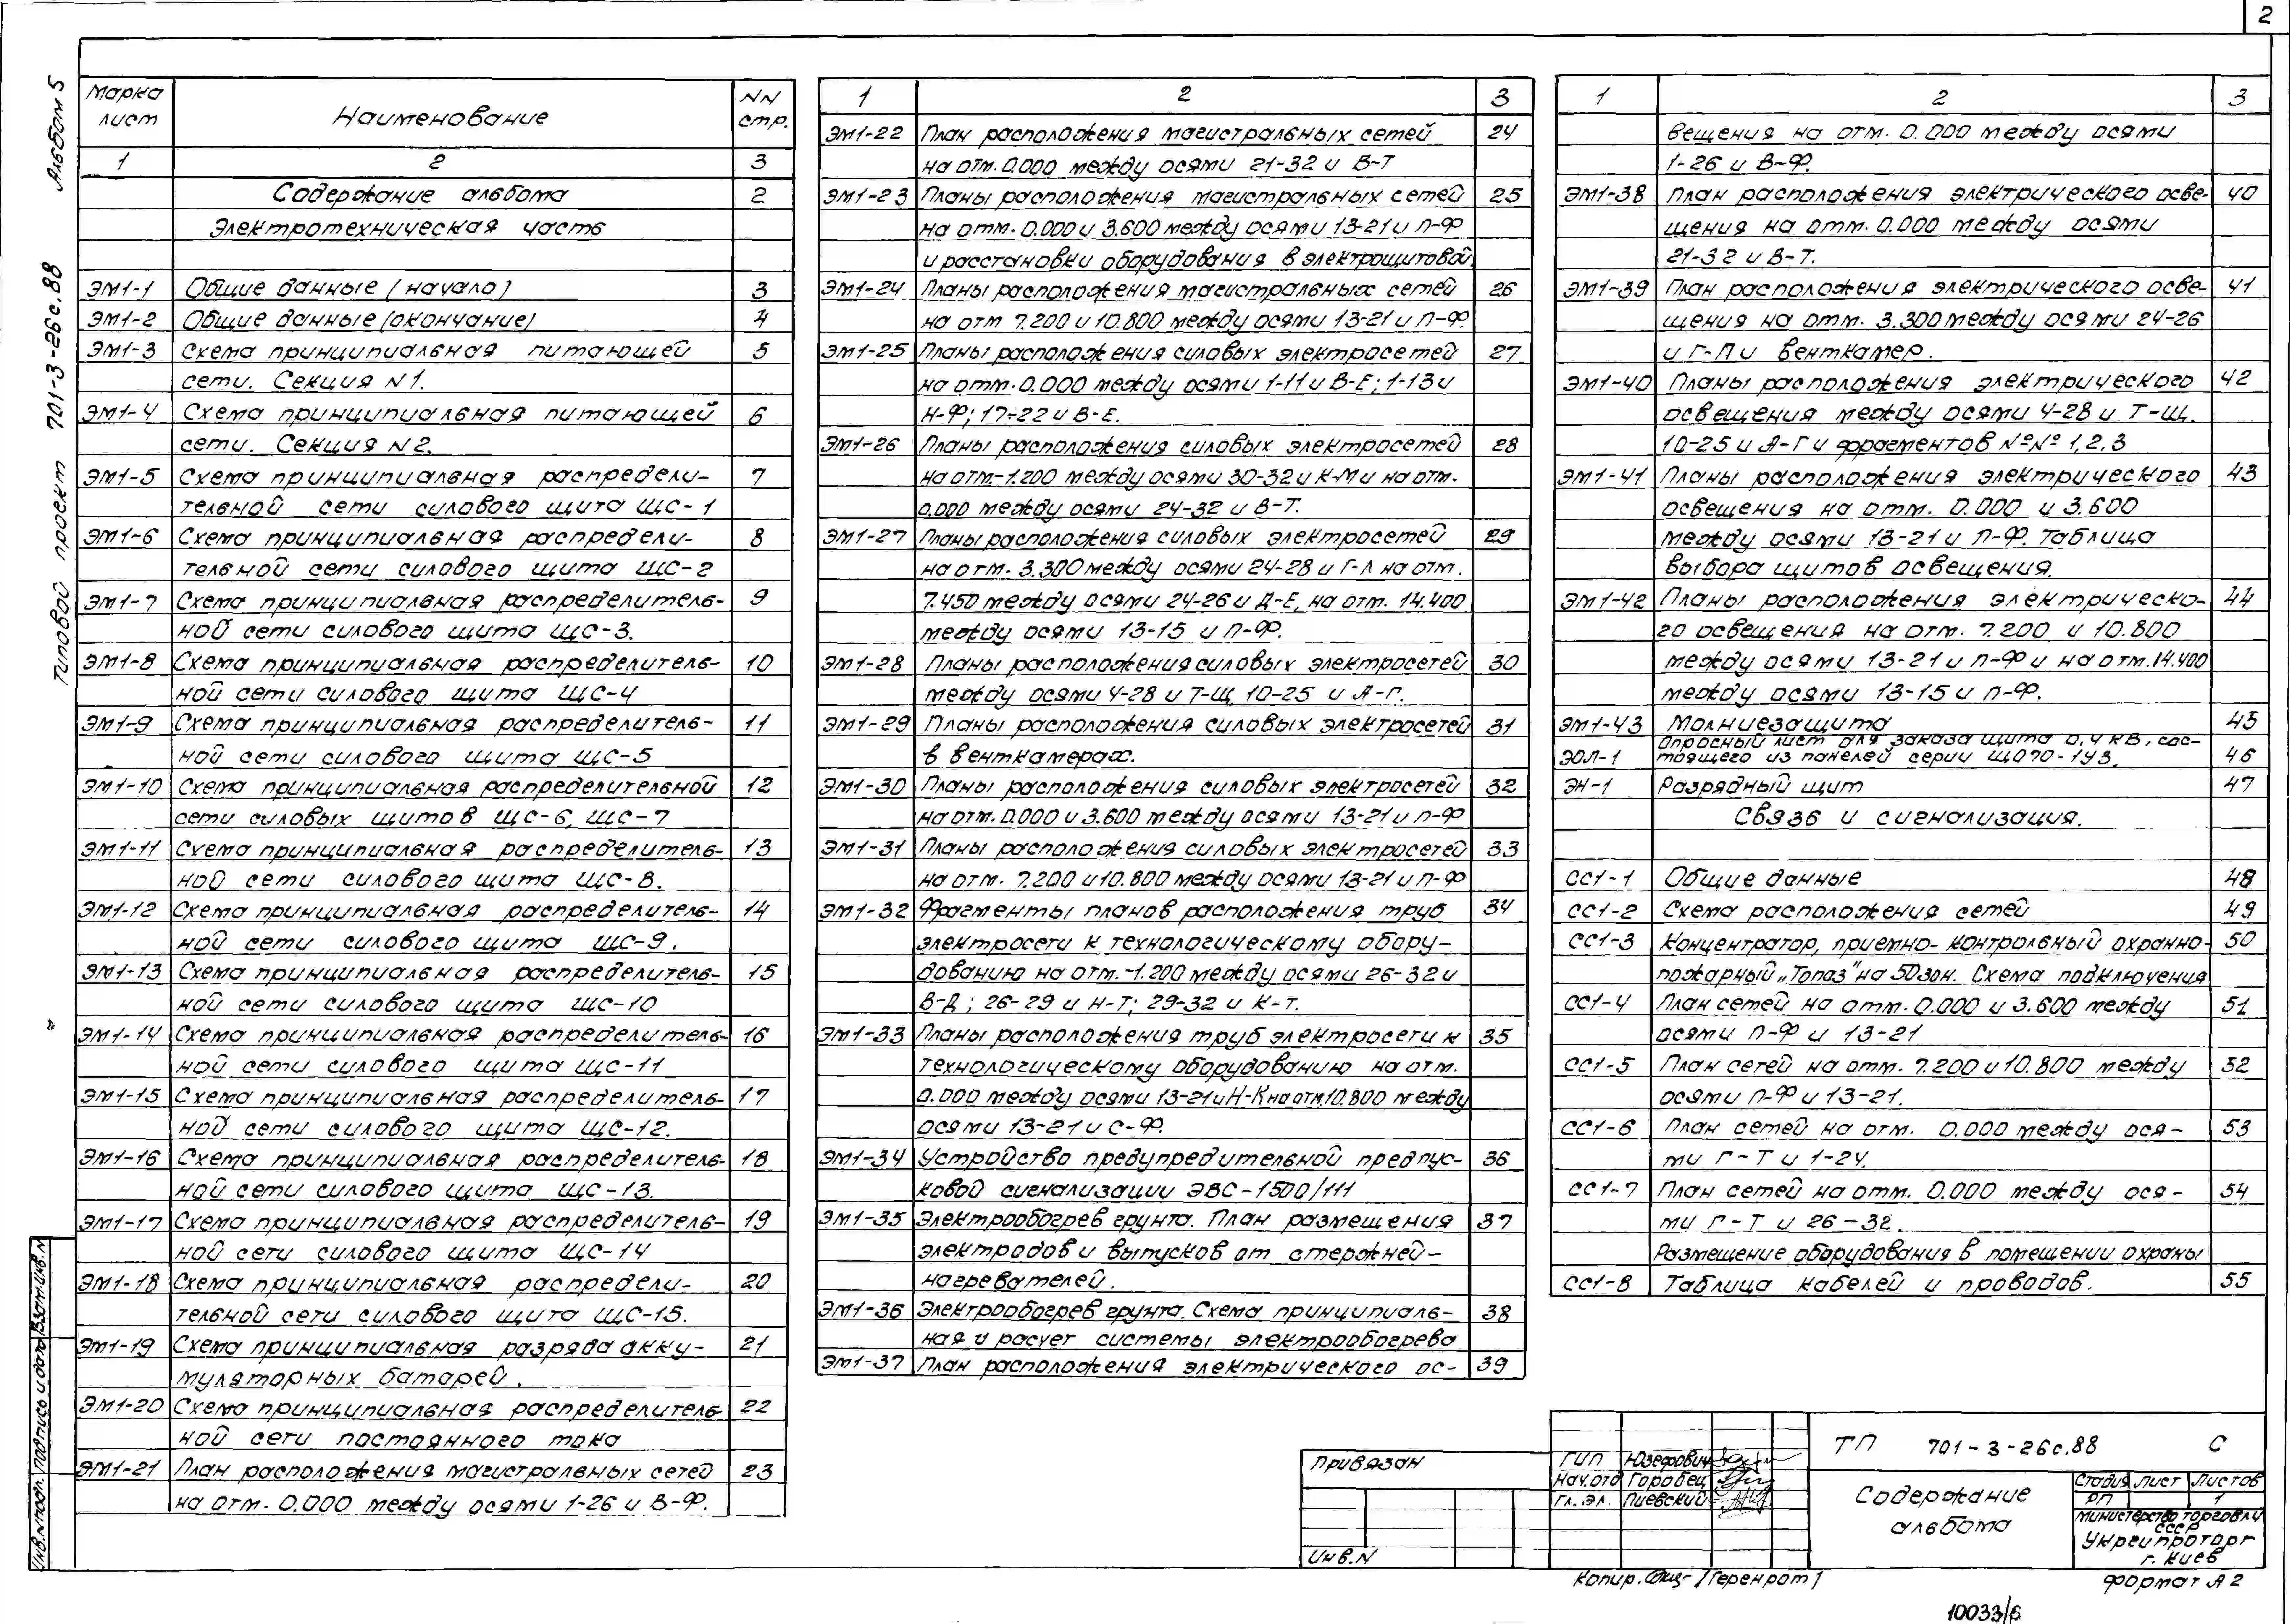 2
Альбом 5
Типовой проект 701-3-26с.88
Марка лист Наименование NN стр.
1 2 3
Содержание альбома 2
Электротехническая часть
ЭМ1-1 Общие данные (начало) 3
ЭМ1-2 Общие данные (окончание) 4
ЭМ1-3 Схема принципиальная питающей 5
сети. Секция N1.
ЭМ1-4 Схема принципиальная питающей 6
сети. Секция N2.
ЭМ1-5 Схема принципиальная распредели- 7
тельной сети силового щита ЩС-1
ЭМ1-6 Схема принципиальная распредели- 8
тельной сети силового щита ЩС-2
ЭМ1-7 Схема принципиальная распределитель- 9
ной сети силового щита ЩС-3.
ЭМ1-8 Схема принципиальная распределитель- 10
ной сети силового щита ЩС-4
ЭМ1-9 Схема принципиальная распределитель- 11
ной сети силового щита ЩС-5
ЭМ1-10 Схема принципиальная распределительной 12
сети силовых щитов ЩС-6, ЩС-7
ЭМ1-11 Схема принципиальная распределитель- 13
ной сети силового щита ЩС-8.
ЭМ1-12 Схема принципиальная распределитель- 14
ной сети силового щита ЩС-9.
ЭМ1-13 Схема принципиальная распределитель- 15
ной сети силового щита ЩС-10
ЭМ1-14 Схема принципиальная распределитель- 16
ной сети силового щита ЩС-11
ЭМ1-15 Схема принципиальная распределитель- 17
ной сети силового щита ЩС-12.
ЭМ1-16 Схема принципиальная распределитель- 18
ной сети силового щита ЩС-13.
ЭМ1-17 Схема принципиальная распределитель- 19
ной сети силового щита ЩС-14
ЭМ1-18 Схема принципиальная распредели- 20
тельной сети силового щита ЩС-15.
ЭМ1-19 Схема принципиальная разряда акку- 21
муляторных батарей.
ЭМ1-20 Схема принципиальная распределитель- 22
ной сети постоянного тока
ЭМ1-21 План расположения магистральных сетей 23
на отм. 0.000 между осями 1-26 и В-Ф.
1 2 3
ЭМ1-22 План расположения магистральных сетей 24
на отм. 0.000 между осями 21-32 и В-Т
ЭМ1-23 Планы расположения магистральных сетей 25
на отм. 0.000 и 3.600 между осями 13-21 и П-Ф
и расстановки оборудования в электрощитовой.
ЭМ1-24 Планы расположения магистральных сетей 26
на отм 7.200 и 10.800 между осями 13-21 и П-Ф.
ЭМ1-25 Планы расположения силовых электросетей 27
на отм. 0.000 между осями 1-11 и В-Е; 1-13 и
Н-Ф; 17÷22 и В-Е.
ЭМ1-26 Планы расположения силовых электросетей 28
на отм.-1.200 между осями 30-32 и К-М и на отм.
0.000 между осями 24-32 и В-Т.
ЭМ1-27 Планы расположения силовых электросетей 29
на отм. 3.300 между осями 24-28 и Г-Л на отм.
7.450 между осями 24-26 и Д-Е, на отм. 14.400
между осями 13-15 и П-Ф.
ЭМ1-28 Планы расположения силовых электросетей 30
между осями 4-28 и Т-Щ, 10-25 и А-Г.
ЭМ1-29 Планы расположения силовых электросетей 31
в венткамерах.
ЭМ1-30 Планы расположения силовых электросетей 32
на отм. 0.000 и 3.600 между осями 13-21 и П-Ф
ЭМ1-31 Планы расположения силовых электросетей 33
на отм. 7.200 и 10.800 между осями 13-21 и П-Ф
ЭМ1-32 Фрагменты планов расположения труб 34
электросети к технологическому обору-
дованию на отм.-1.200 между осями 26-32 и
В-Д; 26-29 и Н-Т; 29-32 и К-Т.
ЭМ1-33 Планы расположения труб электросети к 35
технологическому оборудованию на отм.
0.000 между осями 13-21 и Н-К на отм. 10.800 между
осями 13-21 и С-Ф.
ЭМ1-34 Устройство предупредительной предпус- 36
ковой сигнализации ЭВС-1500/111
ЭМ1-35 Электрообогрев грунта. План размещения 37
электродов и выпусков от стержней-
нагревателей.
ЭМ1-36 Электрообогрев грунта. Схема принципиаль- 38
ная и расчет системы электрообогрева
ЭМ1-37 План расположения электрического ос- 39
1 2 3
вещения на отм. 0.000 между осями
1-26 и В-Ф.
ЭМ1-38 План расположения электрического осве- 40
щения на отм. 0.000 между осями
21-32 и В-Т.
ЭМ1-39 План расположения электрического осве- 41
щения на отм. 3.300 между осями 24-26
и Г-П и венткамер.
ЭМ1-40 Планы расположения электрического 42
освещения между осями 4-28 и Т-Щ.
10-25 и А-Г и фрагментов №№ 1,2,3
ЭМ1-41 Планы расположения электрического 43
освещения на отм. 0.000 и 3.600
между осями 13-21 и П-Ф. Таблица
выбора щитов освещения.
ЭМ1-42 Планы расположения электрическо- 44
го освещения на отм. 7.200 и 10.800
между осями 13-21 и П-Ф и на отм. 14.400
между осями 13-15 и П-Ф.
ЭМ1-43 Молниезащита 45
ЭОЛ-1 Опросный лист для заказа щита 0,4 кВ, сос- 46
тоящего из панелей серии ЩО70-1У3.
ЭН-1 Разрядный щит 47
Связь и сигнализация.
СС1-1 Общие данные 48
СС1-2 Схема расположения сетей 49
СС1-3 Концентратор, приемно-контрольный охранно- 50
пожарный „Топаз" на 50 зон. Схема подключения
СС1-4 План сетей на отм. 0.000 и 3.600 между 51
осями П-Ф и 13-21
СС1-5 План сетей на отм. 7.200 и 10.800 между 52
осями П-Ф и 13-21.
СС1-6 План сетей на отм. 0.000 между ося- 53
ми Г-Т и 1-24.
СС1-7 План сетей на отм. 0.000 между ося- 54
ми Г-Т и 26-32.
Размещение оборудования в помещении охраны
СС1-8 Таблица кабелей и проводов. 55
Инв.N подл. Подпись и дата Взам.инв.N
Привязан
Инв.N
ГИП Юзефович
Нач.отд Горобец
Гл.эл. Пиевский
ТП 701-3-26с.88 С
Содержание
альбома
Стадия Лист Листов
РП 1
Министерство торговли
СССР
Укргипроторг
г. Киев
Копир. /Геренрот/
Формат А2
10033/6